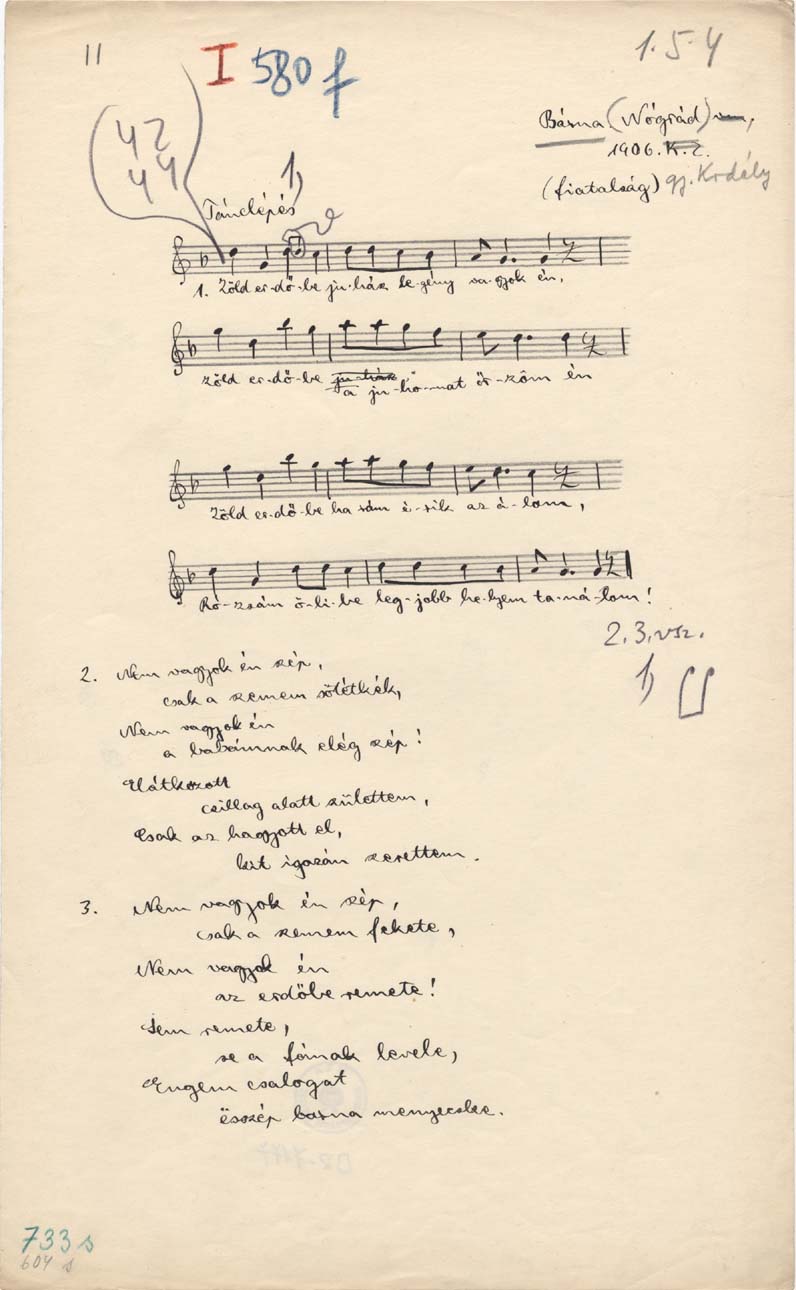 11
I 580 f
1. 5. 4
42
44
Bárna (Nógrád)
1906. K. Z.
(fiatalság) gj. Kodály
1)
Tánclépés
1. Zöld er-dő-be ju-ház le-gény va-gyok én,
Zöld er-dő-be ju-ház a ju-ho-mat őr-zöm én
Zöld er-dő-be ha rám ë-sik az á-lom,
Ró-zsám ö-li-be leg-jobb he-lyem ta-ná-lom!
2. 3. vsz.
1)
2. Nem vagyok én szép,
csak a szemem sötétkék,
Nem vagyok én
a babámnak elég szép!
Elátkozott
csillag alatt születtem,
Csak az hagyott el,
kit igazán szerettem.
3. Nem vagyok én szép,
csak a szemem fekete,
Nem vagyok én
az erdőbe remete!
Sem remete,
se a fának levele,
Engem csalogat
ësszép barna menyecske.
733 s
604 s